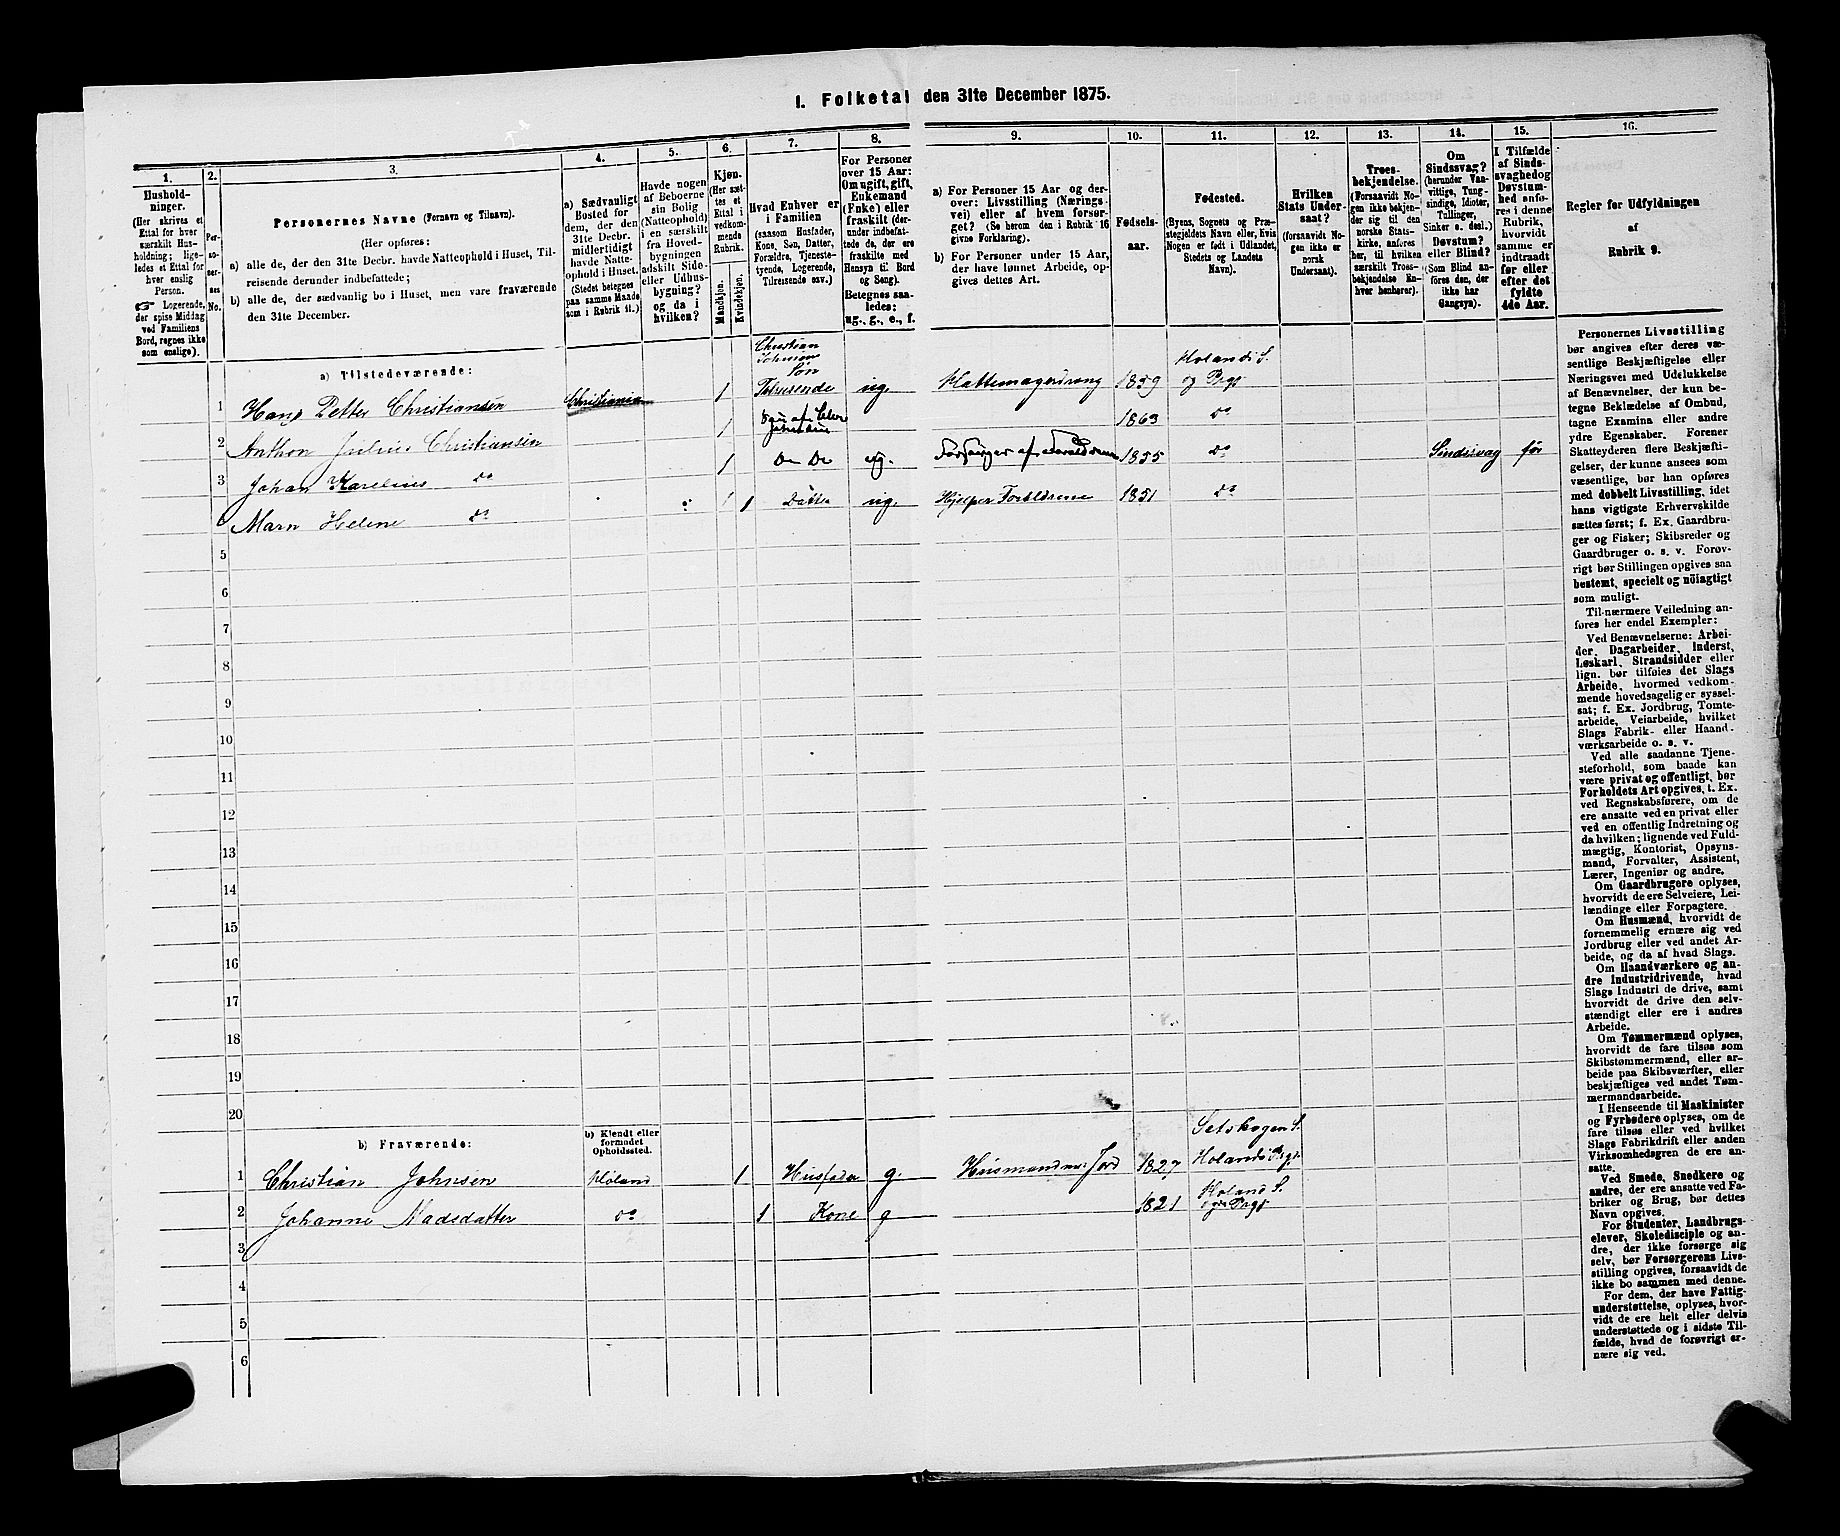 1. Folketal den 31te December 1875.
1.
Hushold-
ninger.
(Her skrives et
Ettal for hver
særskilt Hus-
holdning; lige-
ledes et Ettal for
hver enslig
Person.
☞ Logerende,
der spise Middag
ved Familiens
Bord, regnes ikke
som enslige).
2.
Per-
so-
ner-
nes
No.
3.
Personernes Navne (Fornavn og Tilnavn).
(Her opføres:
a) alle de, der den 31te Decbr. havde Natteophold i Huset, Til-
reisende derunder indbefattede;
b) alle de, der sædvanlig bo i Huset, men vare fraværende
den 31te December.
4.
a) Sædvanligt
Bosted for
dem, der den
31te Decbr.
midlertidigt
havde Natte-
ophold i Huset.
(Stedet betegnes
paa samme Maade
som i Rubrik 11.)
5.
Havde nogen
af Beboerne
sin Bolig
(Natteophold)
i en særskilt
fra Hoved-
bygningen
adskilt Side-
eller Udhus-
bygning?
og da i
hvilken?
6.
Kjøn.
(Her sæt-
tes et
Ettal i
vedkom-
mende
Rubrik.
Mandkjøn.
Kvindekjøn.
7.
Hvad Enhver er
i Familien
(saasom Husfader,
Kone, Søn, Datter,
Forældre, Tjeneste-
tyende, Logerende,
Tilreisende osv.)
8.
For Personer
over 15 Aar:
Om ugift, gift,
Enkemand
(Enke) eller
fraskilt (der-
under indbefat-
tede de, der ere
fraskilte med
Hensyn til Bord
og Seng).
Betegnes saa-
ledes:
ug., g., e., f.
9.
a) For Personer 15 Aar og der-
over: Livsstilling (Nærings-
vei) eller af hvem forsør-
get? (Se herom den i Rubrik 16
givne Forklaring).
b) For Personer under 15 Aar,
der have lønnet Arbeide, op-
gives dettes Art.
10.
Fødsels-
aar.
11.
Fødested.
(Byens, Sognets og Præ-
stegjeldets Navn eller, hvis
Nogen er født i Udlandet,
Stedets og Landets
Navn).
12.
Hvilken
Stats Under-
saat?
(forsaavidt No-
gen ikke er
norsk
Undersaat).
13.
Troes-
bekjendelse.
(Forsaavidt No-
gen ikke bekjen-
der sig til den
norske Stats-
kirke, anføres
her, til hvilken
særskilt Troes-
bekjendelse En-
hver henhører).
14.
Om
Sindssvag?
(herunder Van-
vittige, Tung-
sindige, Idioter,
Tullinger,
Sinker o. desl.)
Døvstum?
eller Blind?
(Som Blind an-
føres den, der
ikke har
Gangsyn).
15.
I Tilfælde
af Sinds-
svaghed og
Døvstum-
hed anfø-
res i denne
Rubrik,
hvorvidt
samme er
indtraadt
før eller
efter det
fyldte
4de Aar.
16.
Regler for Udfyldningen
af
Rubrik 9.
a) Tilstedeværende:
1 Hans Petter Christiansen Christiania 1 Christian Johnsens Søn Tilreisende ug. Hattemagerdreng 1859 Holands S. og Prgj
2 Anthon Julius Christiansen 1 1863 do
3 Johan Karelius do 1 Do Do ug. Forsørges af Forældrene 1855 do Sindssvag før
Marn Helene do 1 1 Datter ug. Hjelper Forældrene 1851 do
5
6
7
8
9
10
11
12
13
14
15
16
17
18
19
20
b) Fraværende:
b) Kjendt eller
formodet
Opholdssted.
1 Christian Johnsen Høland 1 Husfader g. Husmand m. Jord 1827 Setskogen S. Holands Prgj
2 Johanne Madsdatter do 1 Kone g 1821 Holand S. og Prgj
3
4
5
6
Personernes Livsstilling
bør angives efter deres væ-
sentlige Beskjæftigelse eller
Næringsvei med Udelukkelse
af Benævnelser, der kun be-
tegne Beklædelse af Ombud,
tagne Examina eller andre
ydre Egenskaber. Forener
Skatteyderen flere Beskjæfti-
gelser, der kunne ansees som
væsentlige, bør han opføres
med dobbelt Livsstilling, idet
hans vigtigste Erhvervskilde
sættes først; f. Ex. Gaardbru-
ger og Fisker; Skibsreder og
Gaardbruger o. s. v. Forøv-
rigt bør Stillingen opgives saa
bestemt, specielt og nöiagtigt
som muligt.
Til nærmere Veiledning an-
føres her endel Exempler:
Ved Benævnelserne: Arbei-
der, Dagarbeider, Inderst,
Løskarl, Strandsidder eller
lign. bør tilføies det Slags
Arbeide, hvormed vedkom-
mende hovedsagelig er syssel-
sat; f. Ex. Jordbrug, Tomte-
arbeide, Veiarbeide, hvilket
Slags Fabrik- eller Haand-
værksarbeide o. s. v.
Ved alle saadanne Tjene-
steforhold, som baade kan
være privat og offentligt, bør
Forholdets Art opgives, t. Ex.
ved Regnskabsførere, om de
ere ansatte ved en privat eller
ved en offentlig Indretning og
da hvilken; lignende ved Fuld-
mægtig, Kontorist, Opsyns-
mand, Forvalter, Assistent,
Lærer, Ingeniør og andre.
Om Gaardbrugere oplyses,
hvorvidt de ere Selveiere, Lei-
lændinge eller Forpagtere.
Om Husmænd, hvorvidt de
fornemmelig ernære sig ved
Jordbrug eller ved andet Ar-
beide, og da af hvad Slags.
Om Haandværkere og an-
dre Industridrivende, hvad
Slags Industri de drive, samt
hvorvidt de drive den selv-
stændigt eller ere i andres
Arbeide.
Om Tømmermænd oplyses,
hvorvidt de fare tilsøs som
Skibstømmermænd, eller ar-
beide paa Skibsværfter, eller
beskjæftiges ved andet Tøm-
mermandsarbeide.
I Henseende til Maskinister
og Fyrbødere oplyses, om de
fare tilsøs eller ved hvilket
Slags Fabrikdrift eller anden
Virksomhedsgren de ere an-
satte.
Ved Smede, Snedkere og
andre, der ere ansatte ved Fa-
briker og Brug, bør dettes
Navn opgives.
For Studenter, Landbrugs-
elever, Skoledisciple og an-
dre, der ikke forsørge sig
selv, bør Forsørgerens Livs-
stilling opgives, forsaavidt de
ikke bo sammen med denne.
For dem, der have Fattig-
understøttelse, oplyses, hvor-
vidt de ere helt eller delvis
understøttede og i sidste Til-
fælde, hvad de forøvrigt er-
nære sig ved.